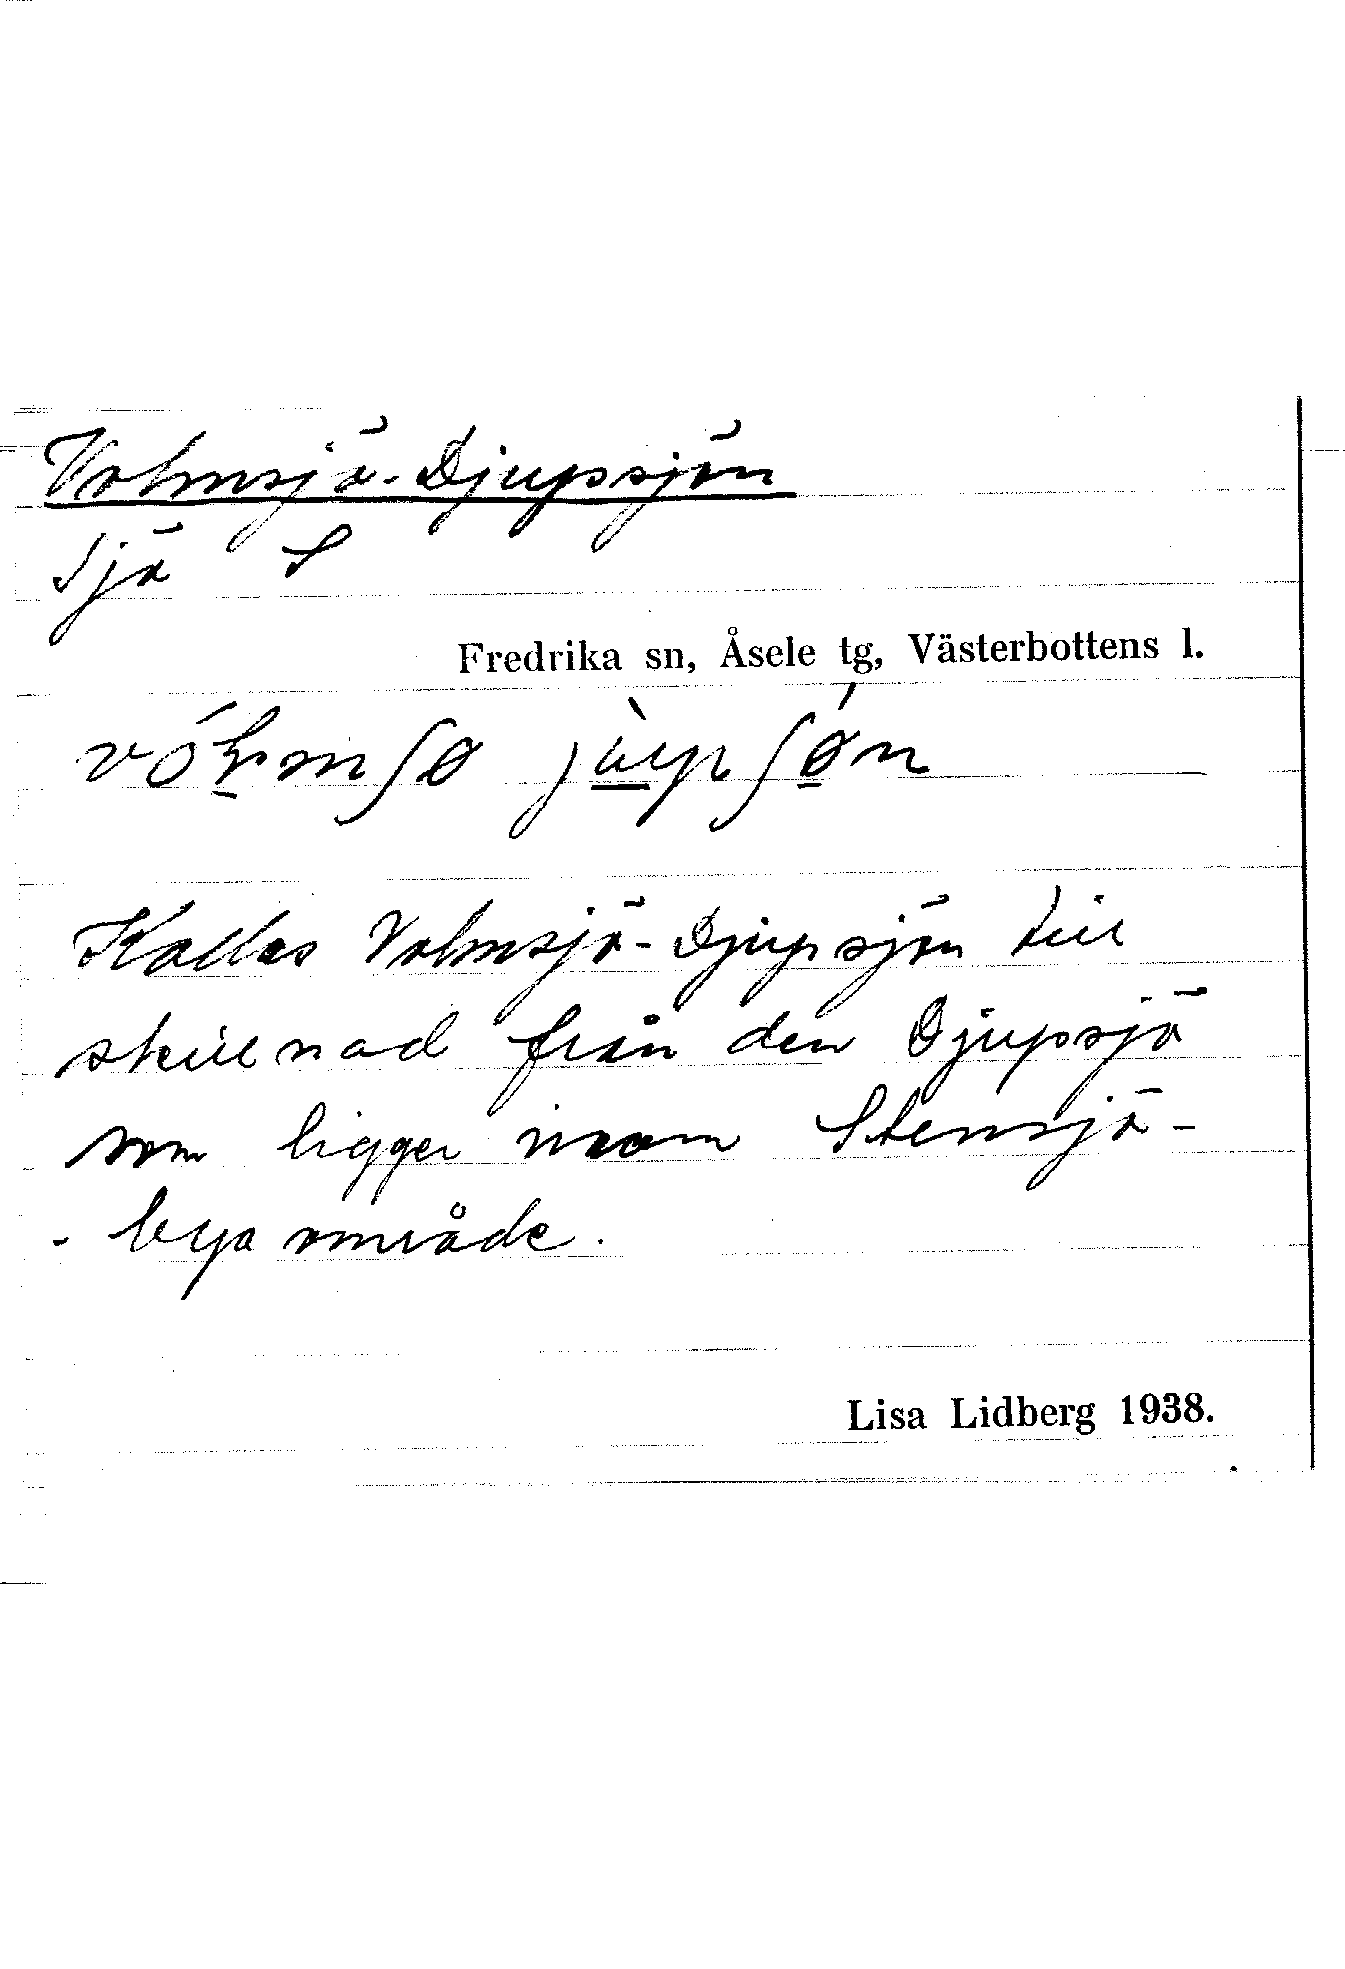 Volmsjö-Djupssjön
Sjö S
Fredrika sn, Åsele tg, Västerbottens l.
Kallas Volmsjö-Djupsjön till
skillnad från den Djupsjö
som ligger inom Stensjö-
- bys område.
Lisa Lidberg 1938.